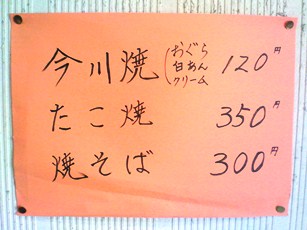 今川焼(おぐら 白あん クリーム 120円
たこ焼 350円
焼そば 300円